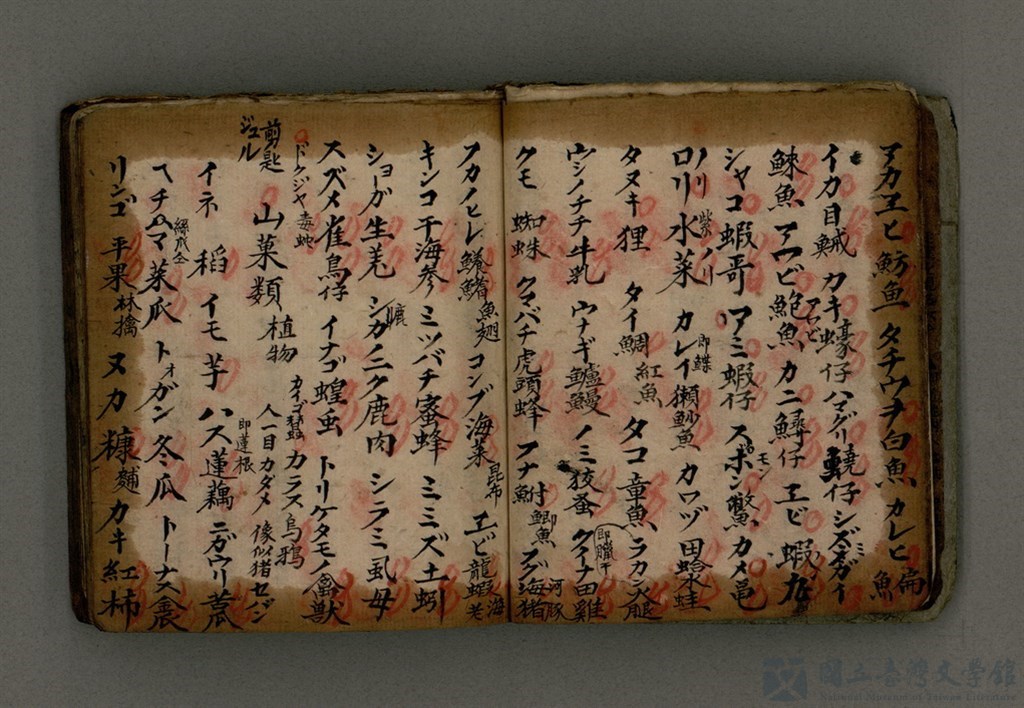 アカヱヒ 魴魚 タチウヲ 白魚 カレヒ 扁魚
イカ 目鰔 カキ 蠔仔 ハマグリ 蟯仔 シズミガイ
鰊魚 アワビ 鮑魚 アワビ カニ 蟳仔 エビ 蝦九
シャコ 蝦哥 ワアミ 蝦仔 スポン 鱉 カメ 黽
ノリ 紫ノリ
ロリ 水菜 カレイ 即鰈 魦魚 カワヅ 田蛤 水蛙
タヌキ 狸 タイ 鯛 紅魚 タコ 章魚 ラカン 火腿 即臘干
ウシノチチ 牛乳 ウナギ 鱸鰻 ノミ 蛟蚤 クイナ 田雞
クモ 蜘蛛 クマバチ 虎頭蜂 フナ 鮒 即鯽魚 フグ 海猪 河豚
フカノヒレ 鱶鰭 魚翅 コンブ 海菜 昆布 エビ 龍蝦 海老
キンコ 干海參 ミツバチ 蜜蜂 ミミズ 土蚓
ショガ 生羌 シカノニク 鹿肉 シラミ 虱母
スズメ 雀鳥仔 イナゴ 蝗虫 トリケタモノ 禽獸
ドクジャ 毒蛇 カイゴ 蠶 カラス 烏鴉
剪匙 ジュル
山菓類 植物 人一目カダメ 像似猪セジ
イネ 稻 イモ 芋 ハス 蓮藕 即蓮根 ニガウリ
ヘチマ 菜瓜 絲瓜仝 トォガン 冬瓜 トーナス
リンゴ 平果 林檎 ヌカ 糠 麵 カキ 紅柿
國立臺灣文學館
National Museum of Taiwan Literature